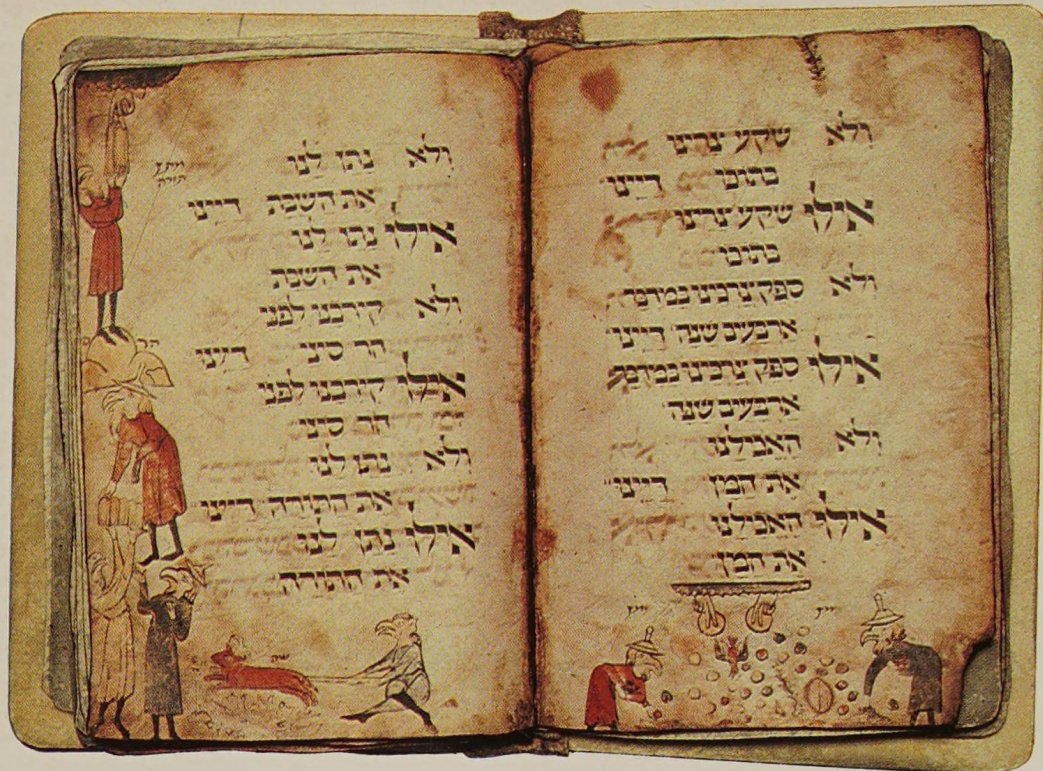 וְלֹא שקע צרינו
בתוכו דַיֵינוּ
אִילוּ שקע צרינו
בתוכו
וְלֹא ספק צרכינו במדבר
ארבעים שנה דיינו
אִילוּ ספק צרכינו במדבר
ארבעים שנה
ולא האכילנו
את המן דיינו
אילו האכילנו
את המן
ולא נתן לנו
את השבת דיינו
אילו נתן לנו
את השבת
ולא קירבנו לפני
הר סיני דיינו
אילו קירבנו לפני
הר סיני
ולא נתן לנו
את התורה דיינו
אילו נתן לנו
את התורה
מתן
תורה
הר
שה